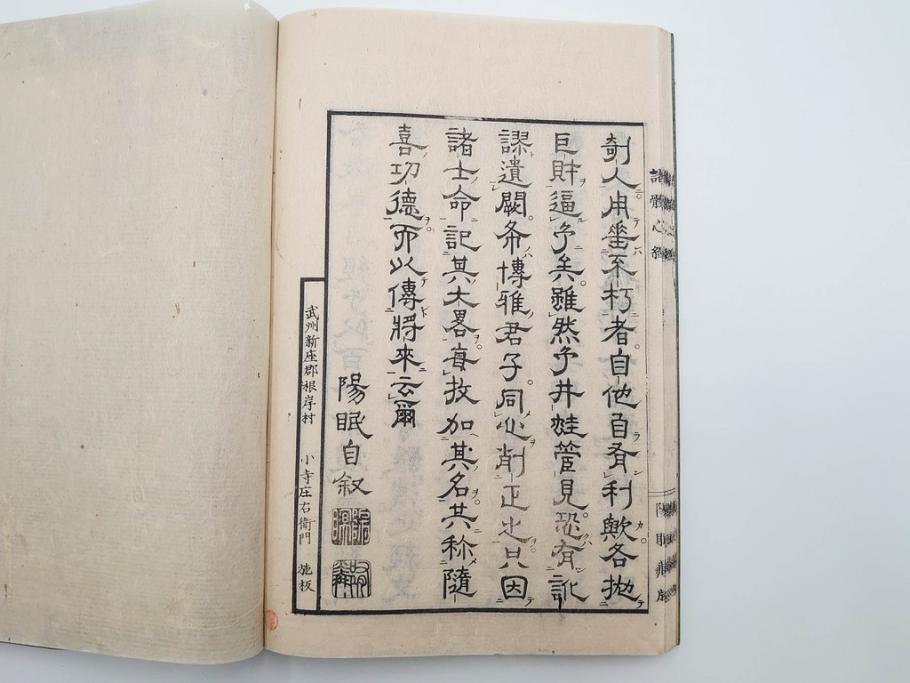 剞人用垂不朽者自他自有利歟各抛
巨財逼予矣雖然予井蛙管見恐有訛
謬遺闕希博雅君子同心削正之只因
諸士命記其大畧每枚加其名共称隨
喜功德而以傳將來云爾
陽眠自叙
武州新座郡根岸村 小寺庄右衛門 施板
諸體心經